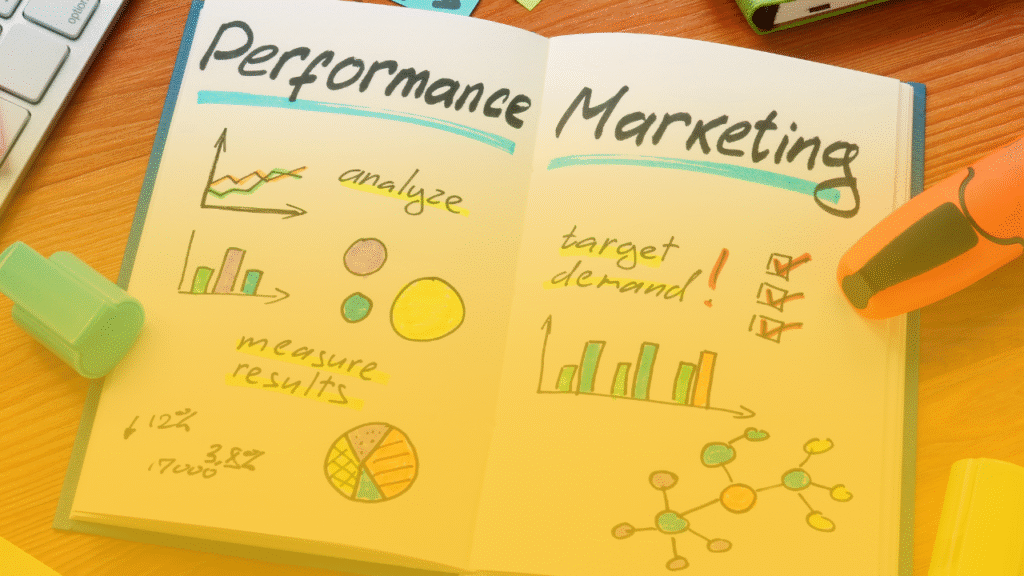 option
Performance
analyze
measure
results
12%
3,8%
17000
Marketing
target
demand!